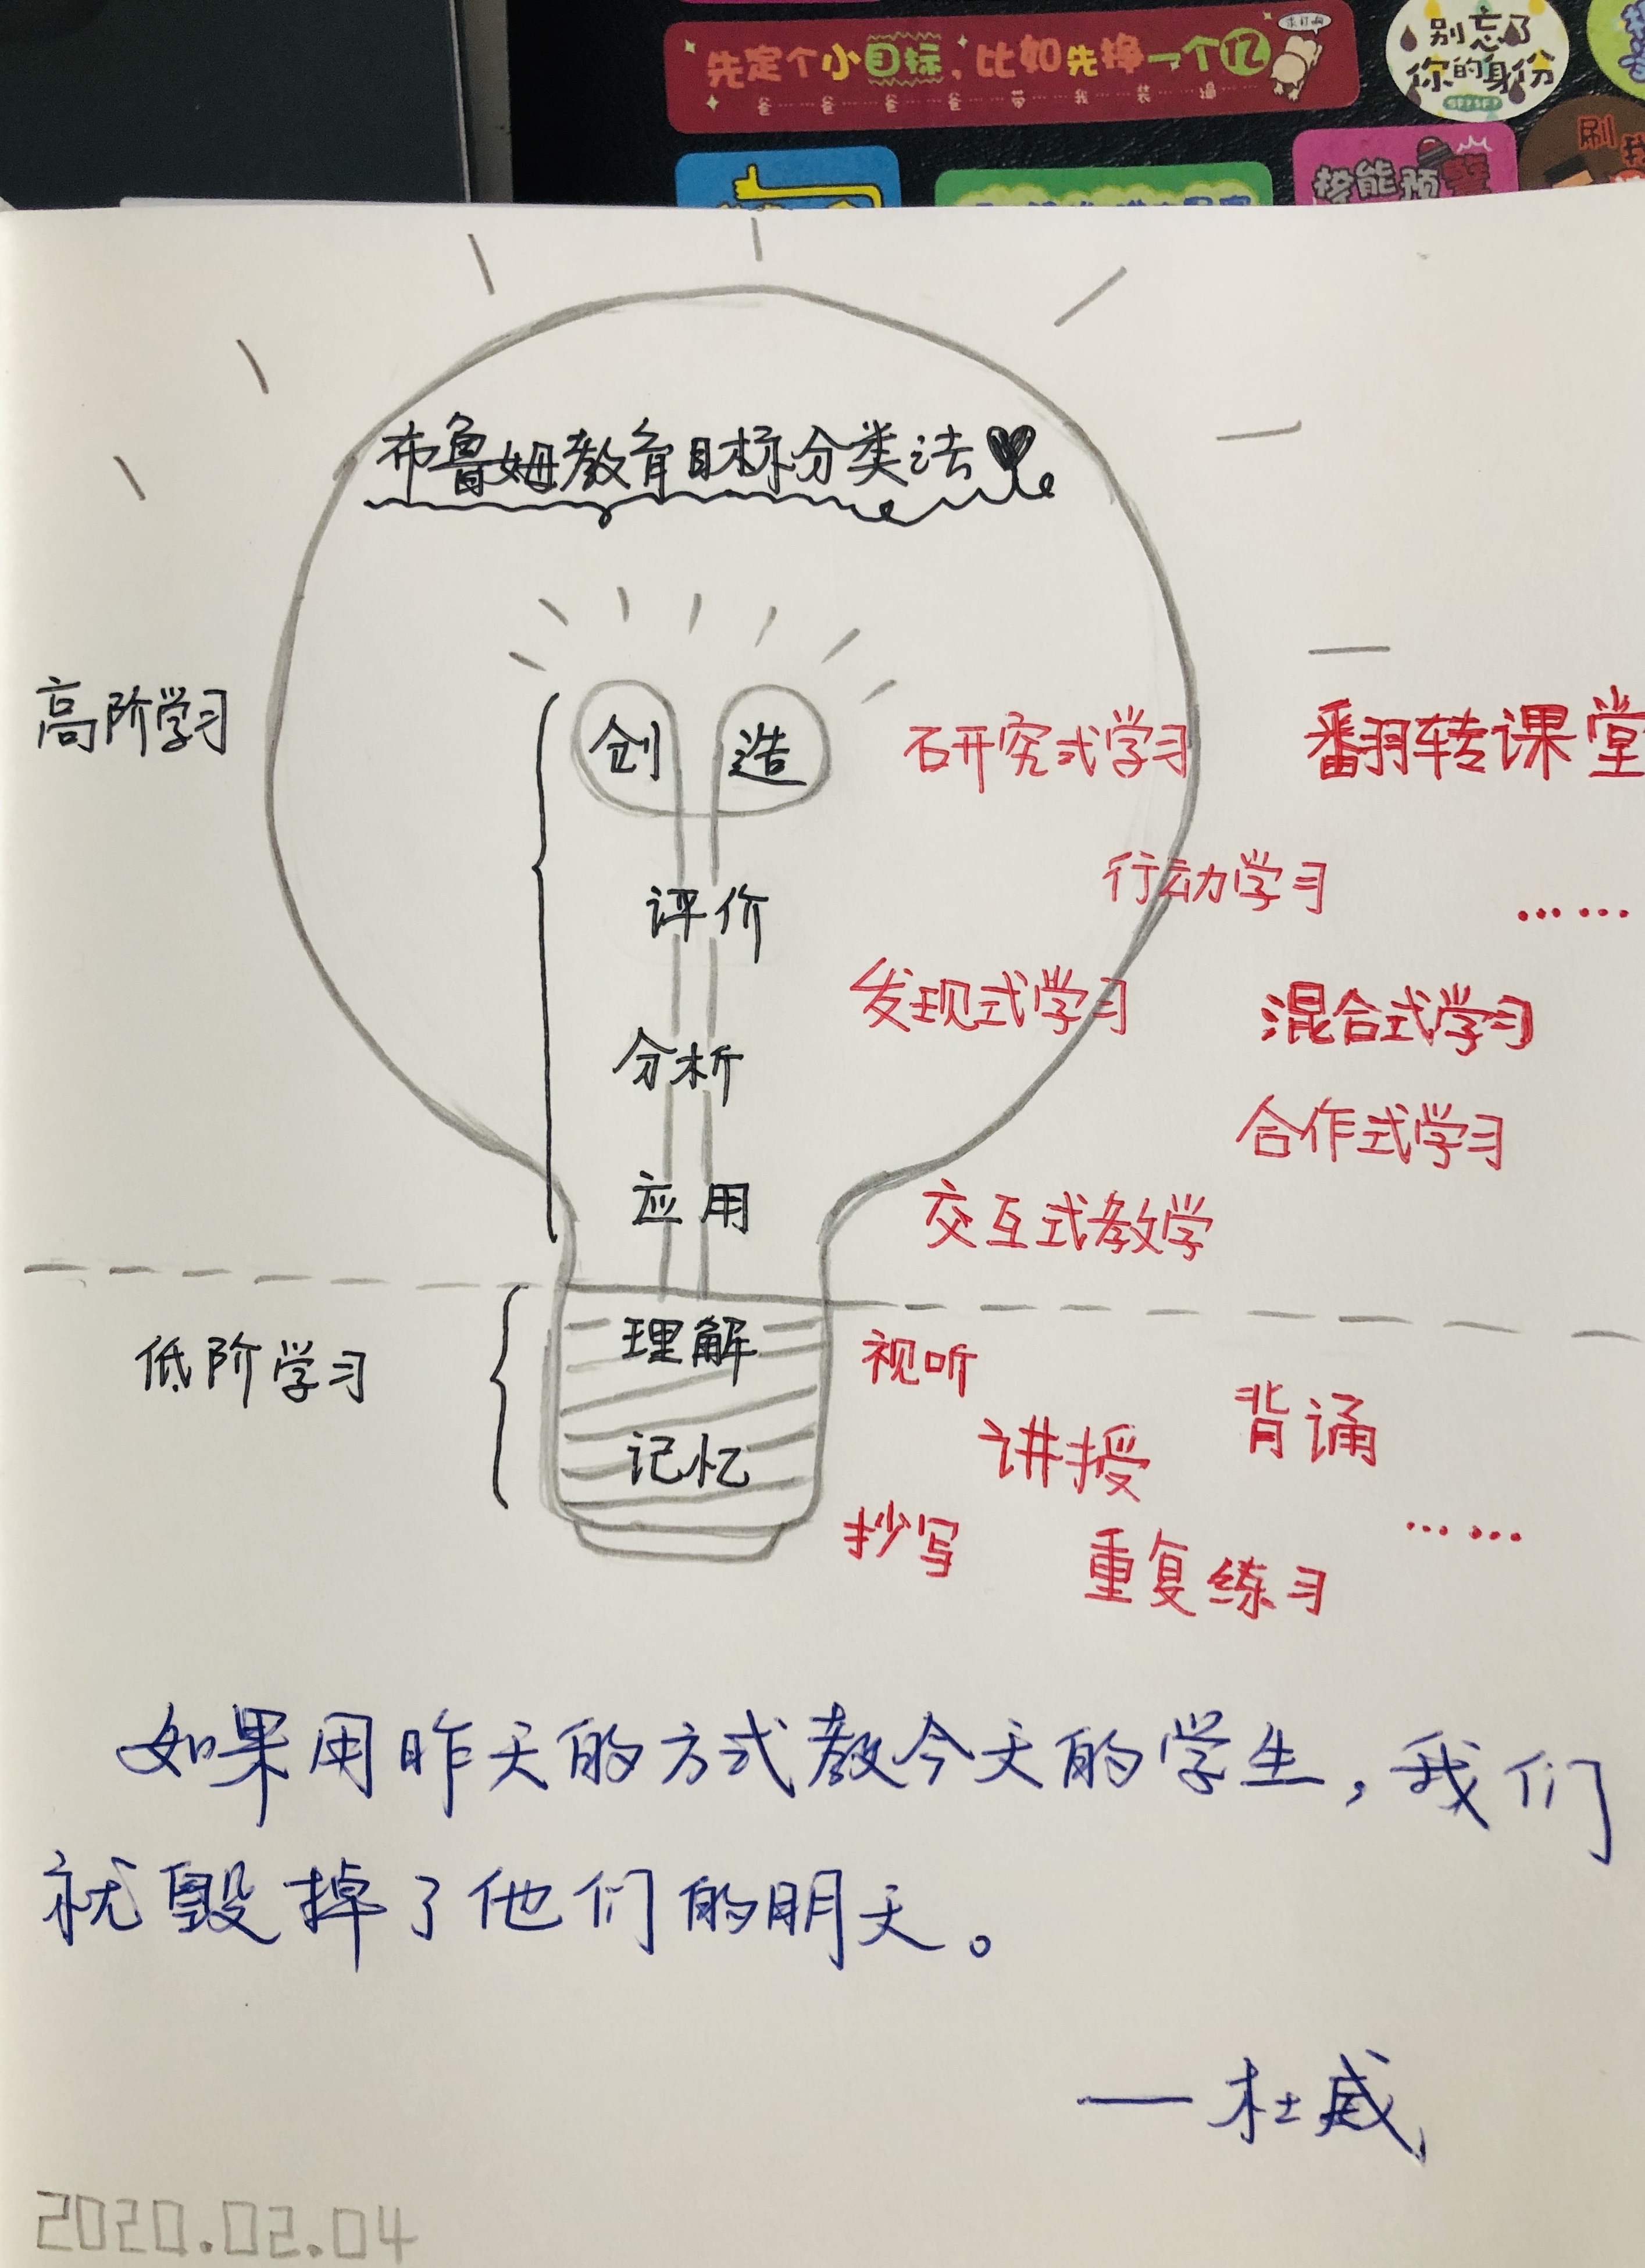 先定个小目标，比如先挣一个亿
求打赏
爸爸爸爸带我装逼
别忘了
你的身份
核能预警
刷我
布鲁姆教育目标分类法
高阶学习
创造
研究式学习
翻转课堂
评价
行动学习
……
发现式学习
混合式学习
分析
合作式学习
应用
交互式教学
低阶学习
理解
视听
讲授
背诵
记忆
抄写
重复练习
……
如果用昨天的方式教今天的学生，我们
就毁掉了他们的明天。
——杜威
2020.02.04